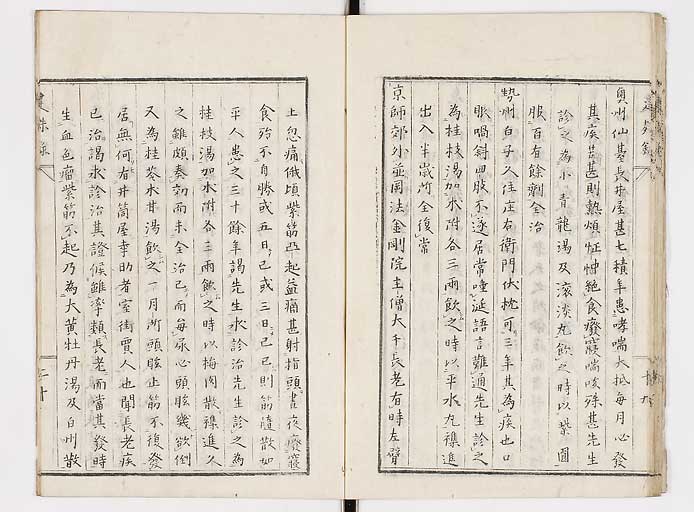 奥州仙臺長井屋甚七積年患哮喘大抵毎月必發
其疾苦甚則熱煩怔忡絶食癈寢喘咳殊甚先生
診之為小青龍湯及滾淡丸飲之時以紫圓
服百有餘劑全治
勢州白子久住庄右衛門伏枕可三年其為疾也口
眼喎斜四肢不遂居常唾涎語言難通先生診之
為桂枝湯加朮附各三兩飲之時以平水丸襍進
出入半歳所全復常
京師郊外並岡法金剛院主僧大千長老有時左臂
上忽痛俄頃紫筋亞起益痛甚射指頭晝夜癈寢
食殆不自勝或五日已或三日已已則筋隨散如
平人患之三十餘年謁先生求診治先生診之為
桂枝湯加朮附各三兩飲之時以梅肉散襍進久
之雖頗奏効而未全治已而毎尿心頭眩幾欲倒
又為桂苓朮甘湯飲之一月所頭眩止筋不復發
居無何有井筒屋李助者室街賈人也聞長老疾
已治謁求診治其證候雖淳類長老而當其發時
生血色瘤紫筋不起乃為大黄牡丹湯及白州散
建殊録
二十
十九